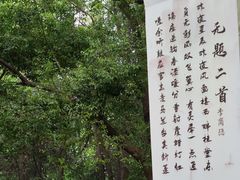 无题二首
李商隐
昨夜星辰昨夜风画楼西畔桂堂东
身无彩凤双飞翼心有灵犀一点通
隔座送钩春酒暖分曹射覆蜡灯红
嗟余听鼓应官去走马兰台类转蓬